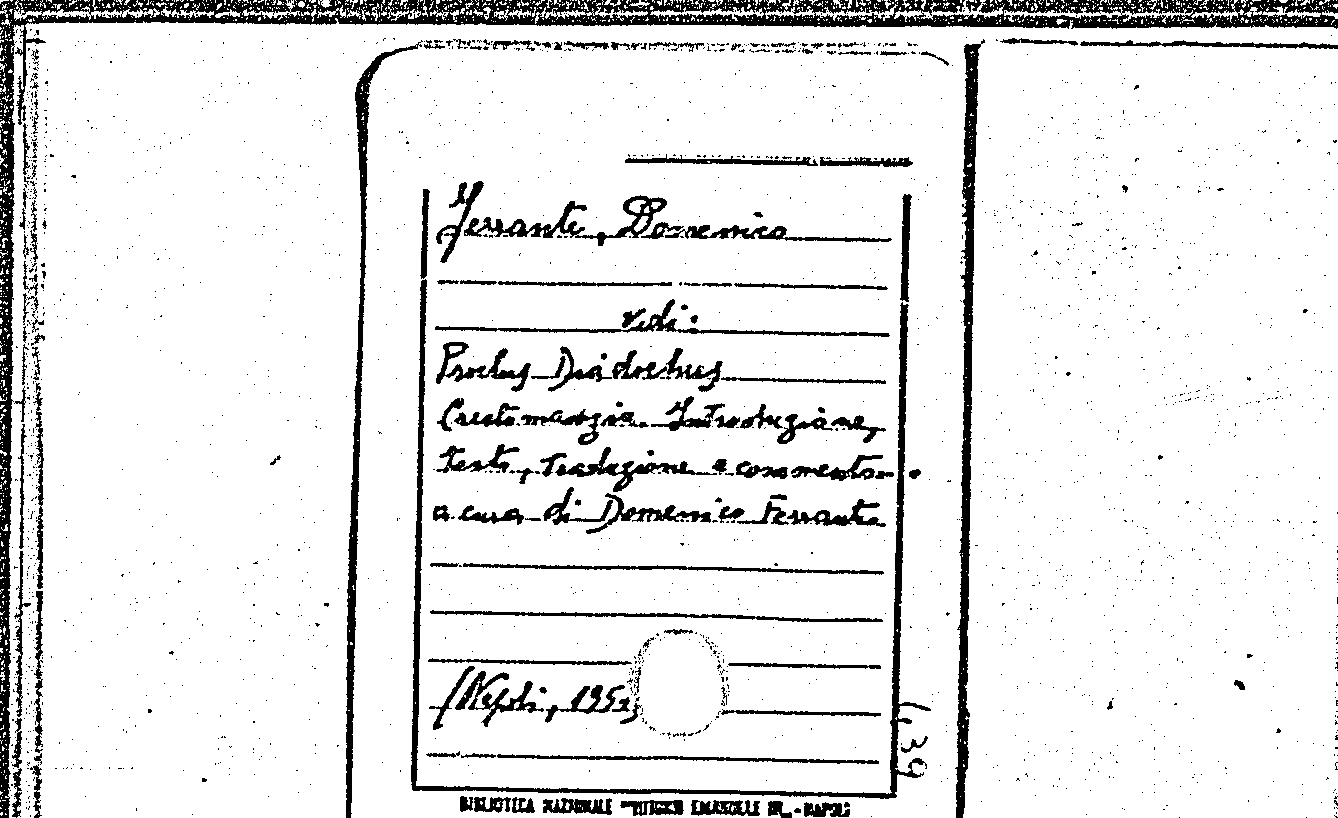 Ferrante, Domenico
vedi:
Proclus Diadochus
Crestomanzia. Introduzione,
testo, traduzione e commento
a cura di Domenico Ferrante
(Napoli, 1957)
4,39
BIBLIOTECA NAZIONALE "VITTORIO EMANUELE III" - NAPOLI